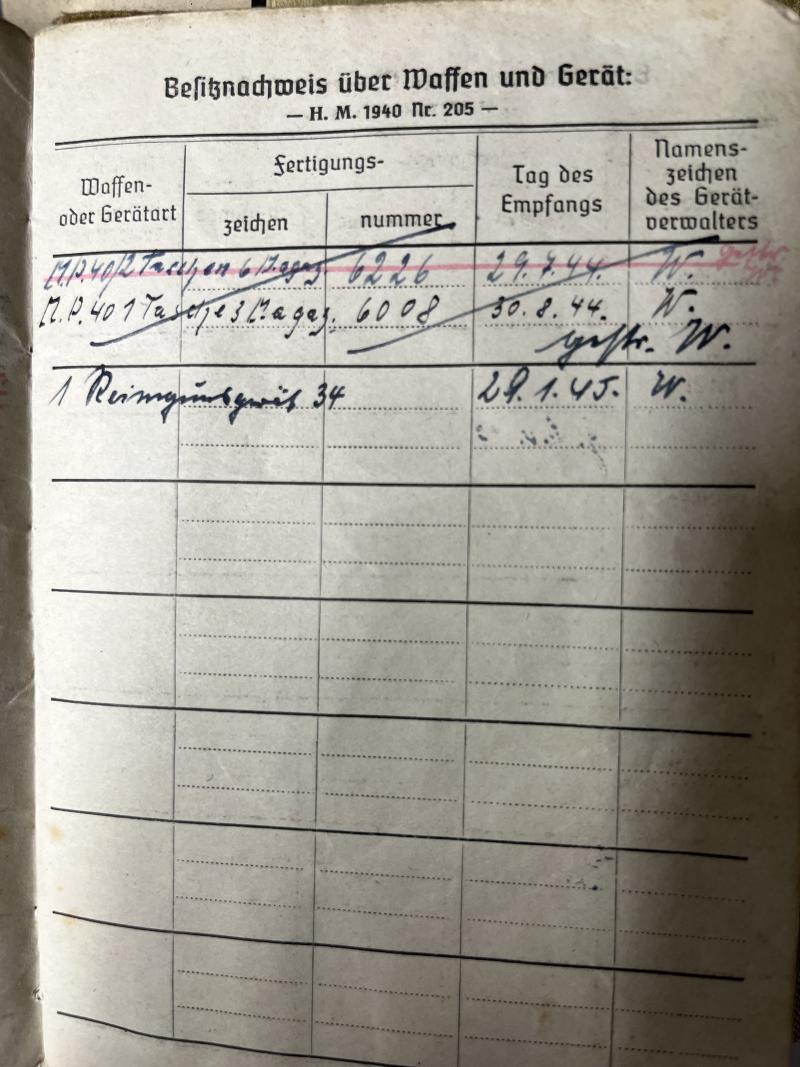 Besitznachweis über Waffen und Gerät:
— H. M. 1940 Nr. 205 —
Waffen- oder Gerätart
Fertigungs-
zeichen
nummer
Tag des Empfangs
Namens- zeichen des Gerät- verwalters
M.P. 40/2 Taschen 6 Magaz. 6226 29.7.44. W. gestr. W.
M.P. 40 1 Tasche 3 Magaz. 6008 30.8.44. W.
gestr. W.
1 Reinigungsgerät 34 29.1.45. W.